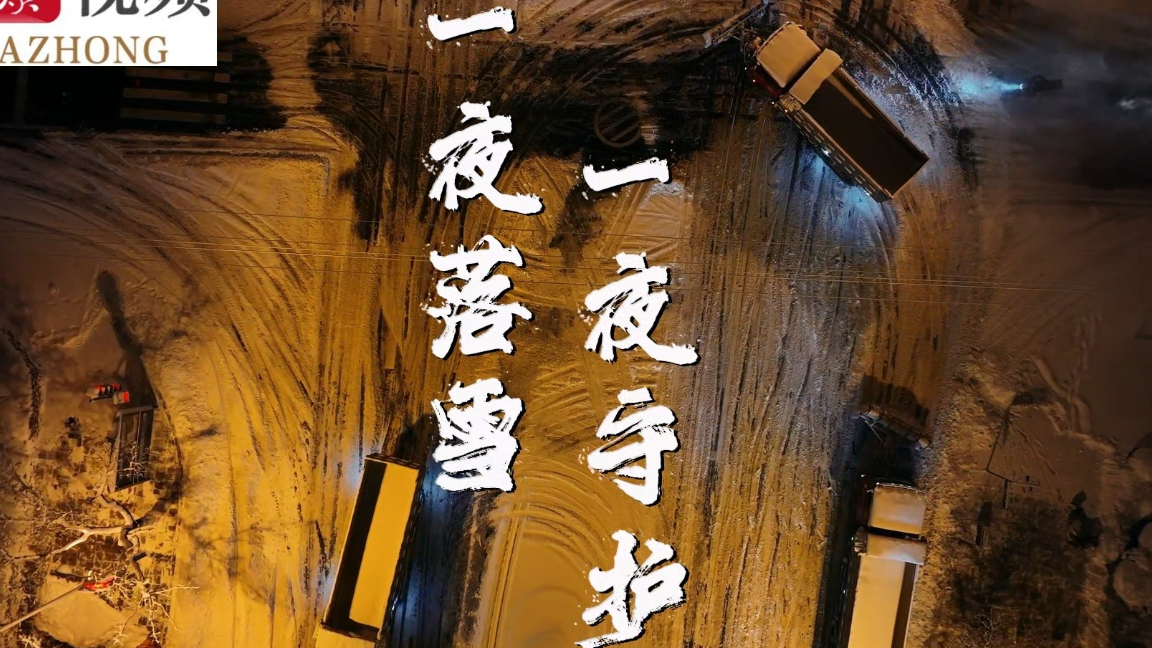 视频
AZHONG
一夜落雪
一夜守护